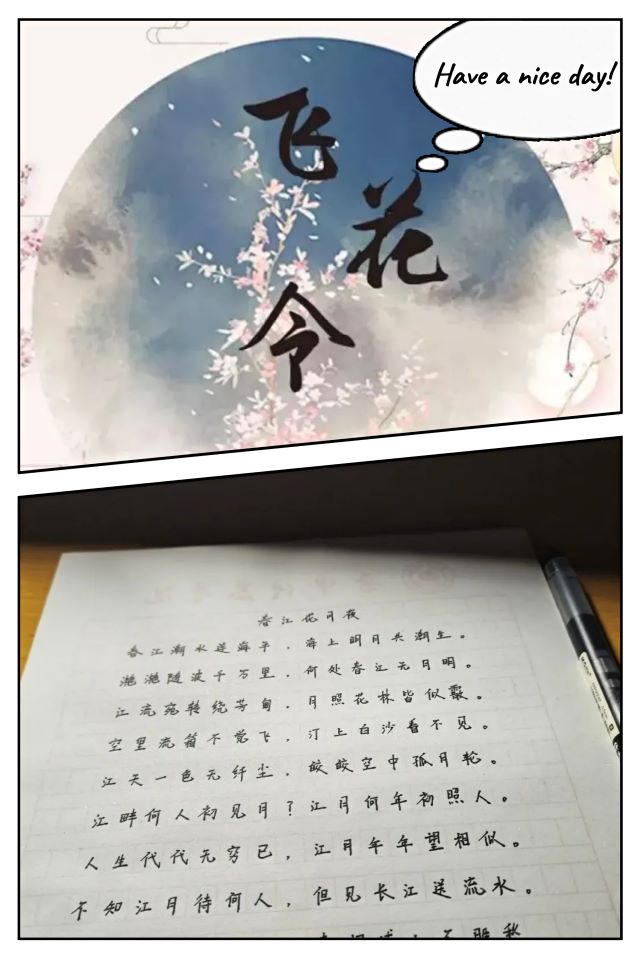 Have a nice day!
飞
花
令
春江花月夜
春江潮水连海平，海上明月共潮生。
滟滟随波千万里，何处春江无月明。
江流宛转绕芳甸，月照花林皆似霰。
空里流霜不觉飞，汀上白沙看不见。
江天一色无纤尘，皎皎空中孤月轮。
江畔何人初见月？江月何年初照人。
人生代代无穷已，江月年年望相似。
不知江月待何人，但见长江送流水。